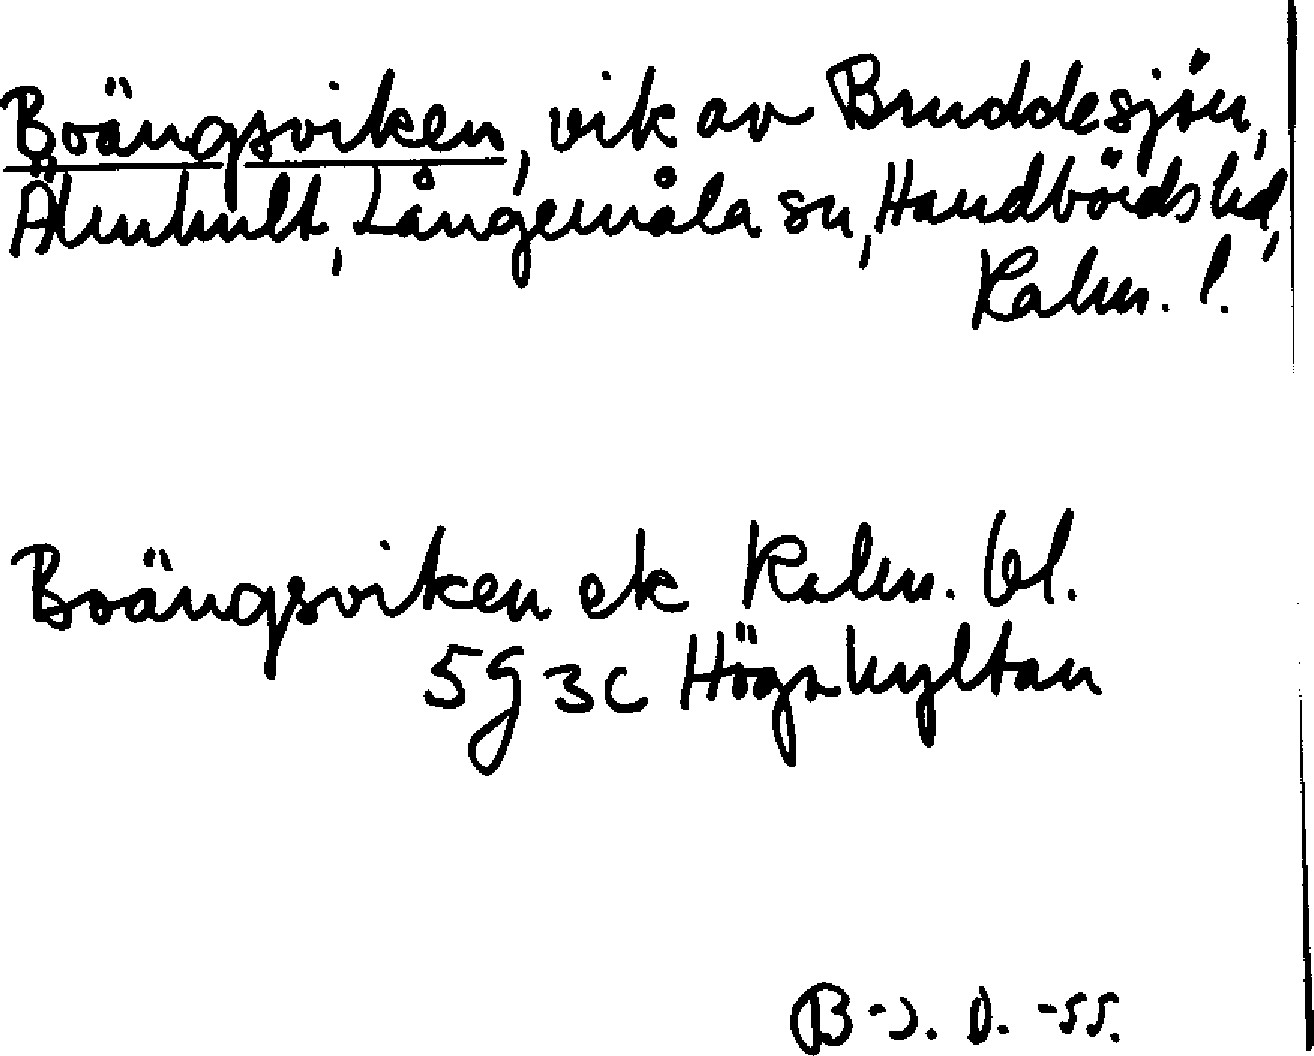 Boängsviken, vik av Bruddesjön,
Älmhult, Långemåla sn, Handbörds hd,
Kalm. l.
Boängsviken ek Kalm. bl.
5G 3c Högahyltan
B-J. O. -55.